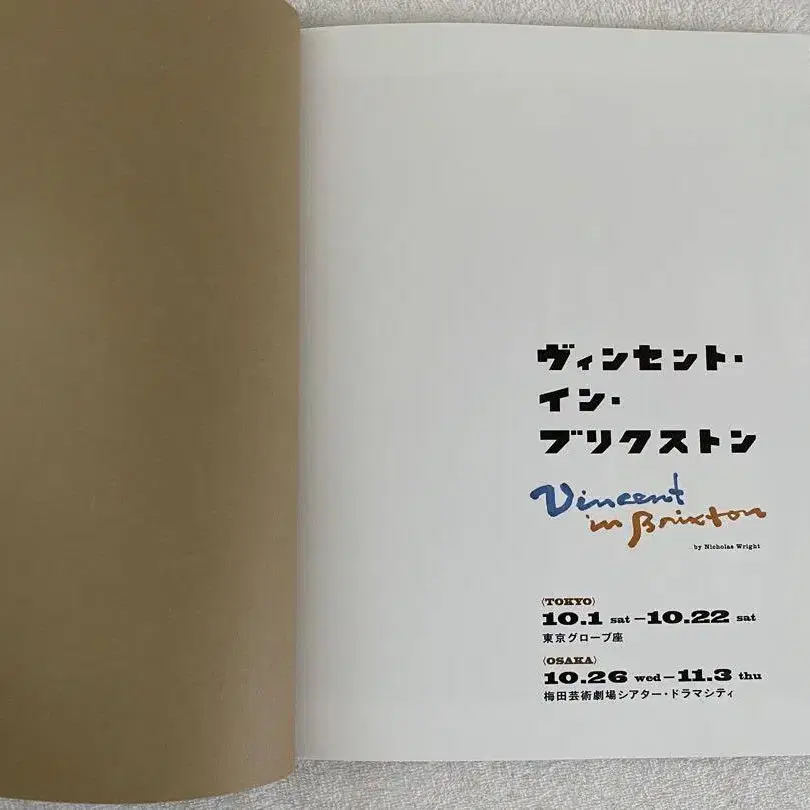 ヴィンセント・
イン・
ブリクストン
Vincent
in Brixton
by Nicholas Wright
〈TOKYO〉
10.1 sat－10.22 sat
東京グローブ座
〈OSAKA〉
10.26 wed－11.3 thu
梅田芸術劇場シアター・ドラマシティ